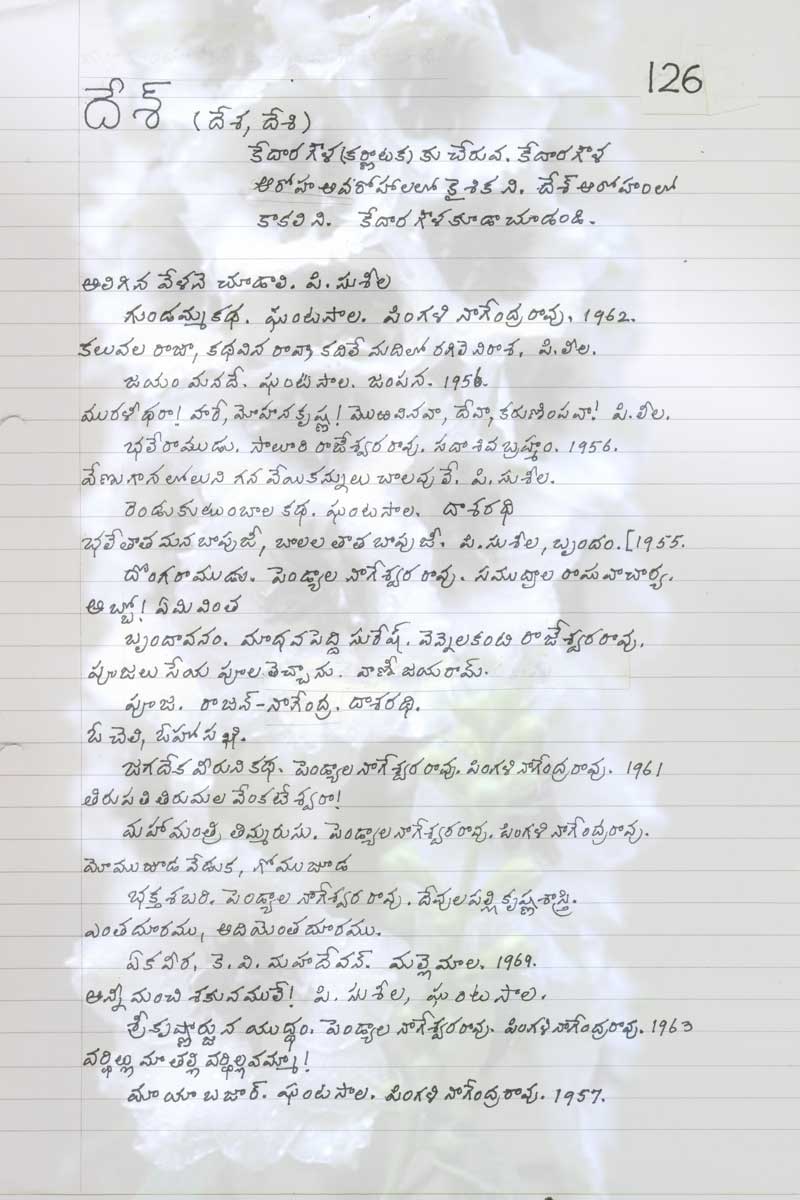 126
దేశ్ (దేశ, దేశి)
కేదారగౌళ (కర్ణాటక) కు చేరువ. కేదారగౌళ
ఆరోహ అవరోహాలలో కైశిక ని. దేశ్ ఆరోహంలో
కాకలి ని. కేదారగౌళ కూడా చూడండి.
అలిగిన వేళనె చూడాలి. పి.సుశీల
గుండమ్మకథ. ఘంటసాల. పింగళి నాగేంద్రరావు. 1962.
కలువల రాజా, కథవిన రావా, కదిలే మదిలో రగిలె నిరాశ. పి.లీల.
జయం మనదే. ఘంటసాల. జంపన. 1956.
మురళీధరా! హరే, మోహనకృష్ణ! మొఱవినవా, దేవా, కరుణింపవా! పి.లీల.
భలేరాముడు. సాలూరి రాజేశ్వరరావు. సదాశివ బ్రహ్మం. 1956.
వేణుగానలోలుని గన వేయికన్నులు చాలవులే. పి.సుశీల.
రెండుకుటుంబాల కథ. ఘంటసాల. దాశరథి
భలేతాత మన బాపుజీ, బాలల తాత బాపుజీ. పి.సుశీల, బృందం. [1955.
దొంగరాముడు. పెండ్యాల నాగేశ్వరరావు. సముద్రాల రాఘవాచార్య.
ఆబ్బో! ఏమి వింత
బృందావనం. మాధవపెద్ది సురేష్. వెన్నెలకంటి రాజేశ్వరరావు.
పూజలు సేయ పూలు తెచ్చాను. వాణీ జయరామ్.
పూజ. రాజన్-నాగేంద్ర. దాశరథి.
ఓ చెలి, ఓహో సఖి.
జగదేక వీరుని కథ. పెండ్యాల నాగేశ్వరరావు. పింగళి నాగేంద్రరావు. 1961
తిరుపతి తిరుమల వేంకటేశ్వరా!
మహామంత్రి తిమ్మరుసు. పెండ్యాల నాగేశ్వరరావు. పింగళి నాగేంద్రరావు.
మోము జూడ వేడుక, గోము జూడ
భక్త శబరి. పెండ్యాల నాగేశ్వరరావు. దేవులపల్లి కృష్ణశాస్త్రి.
ఎంత దూరము, అది యెంత దూరము.
ఏకవీర. కె.వి.మహదేవన్. మల్లెమాల. 1969.
అన్నీ మంచి శకునములే! పి.సుశీల, ఘంటసాల.
శ్రీకృష్ణార్జున యుద్ధం. పెండ్యాల నాగేశ్వరరావు. పింగళి నాగేంద్రరావు. 1963
వర్ధిల్లు మా తల్లి వర్ధిల్లవమ్మా!
మాయా బజార్. ఘంటసాల. పింగళి నాగేంద్రరావు. 1957.